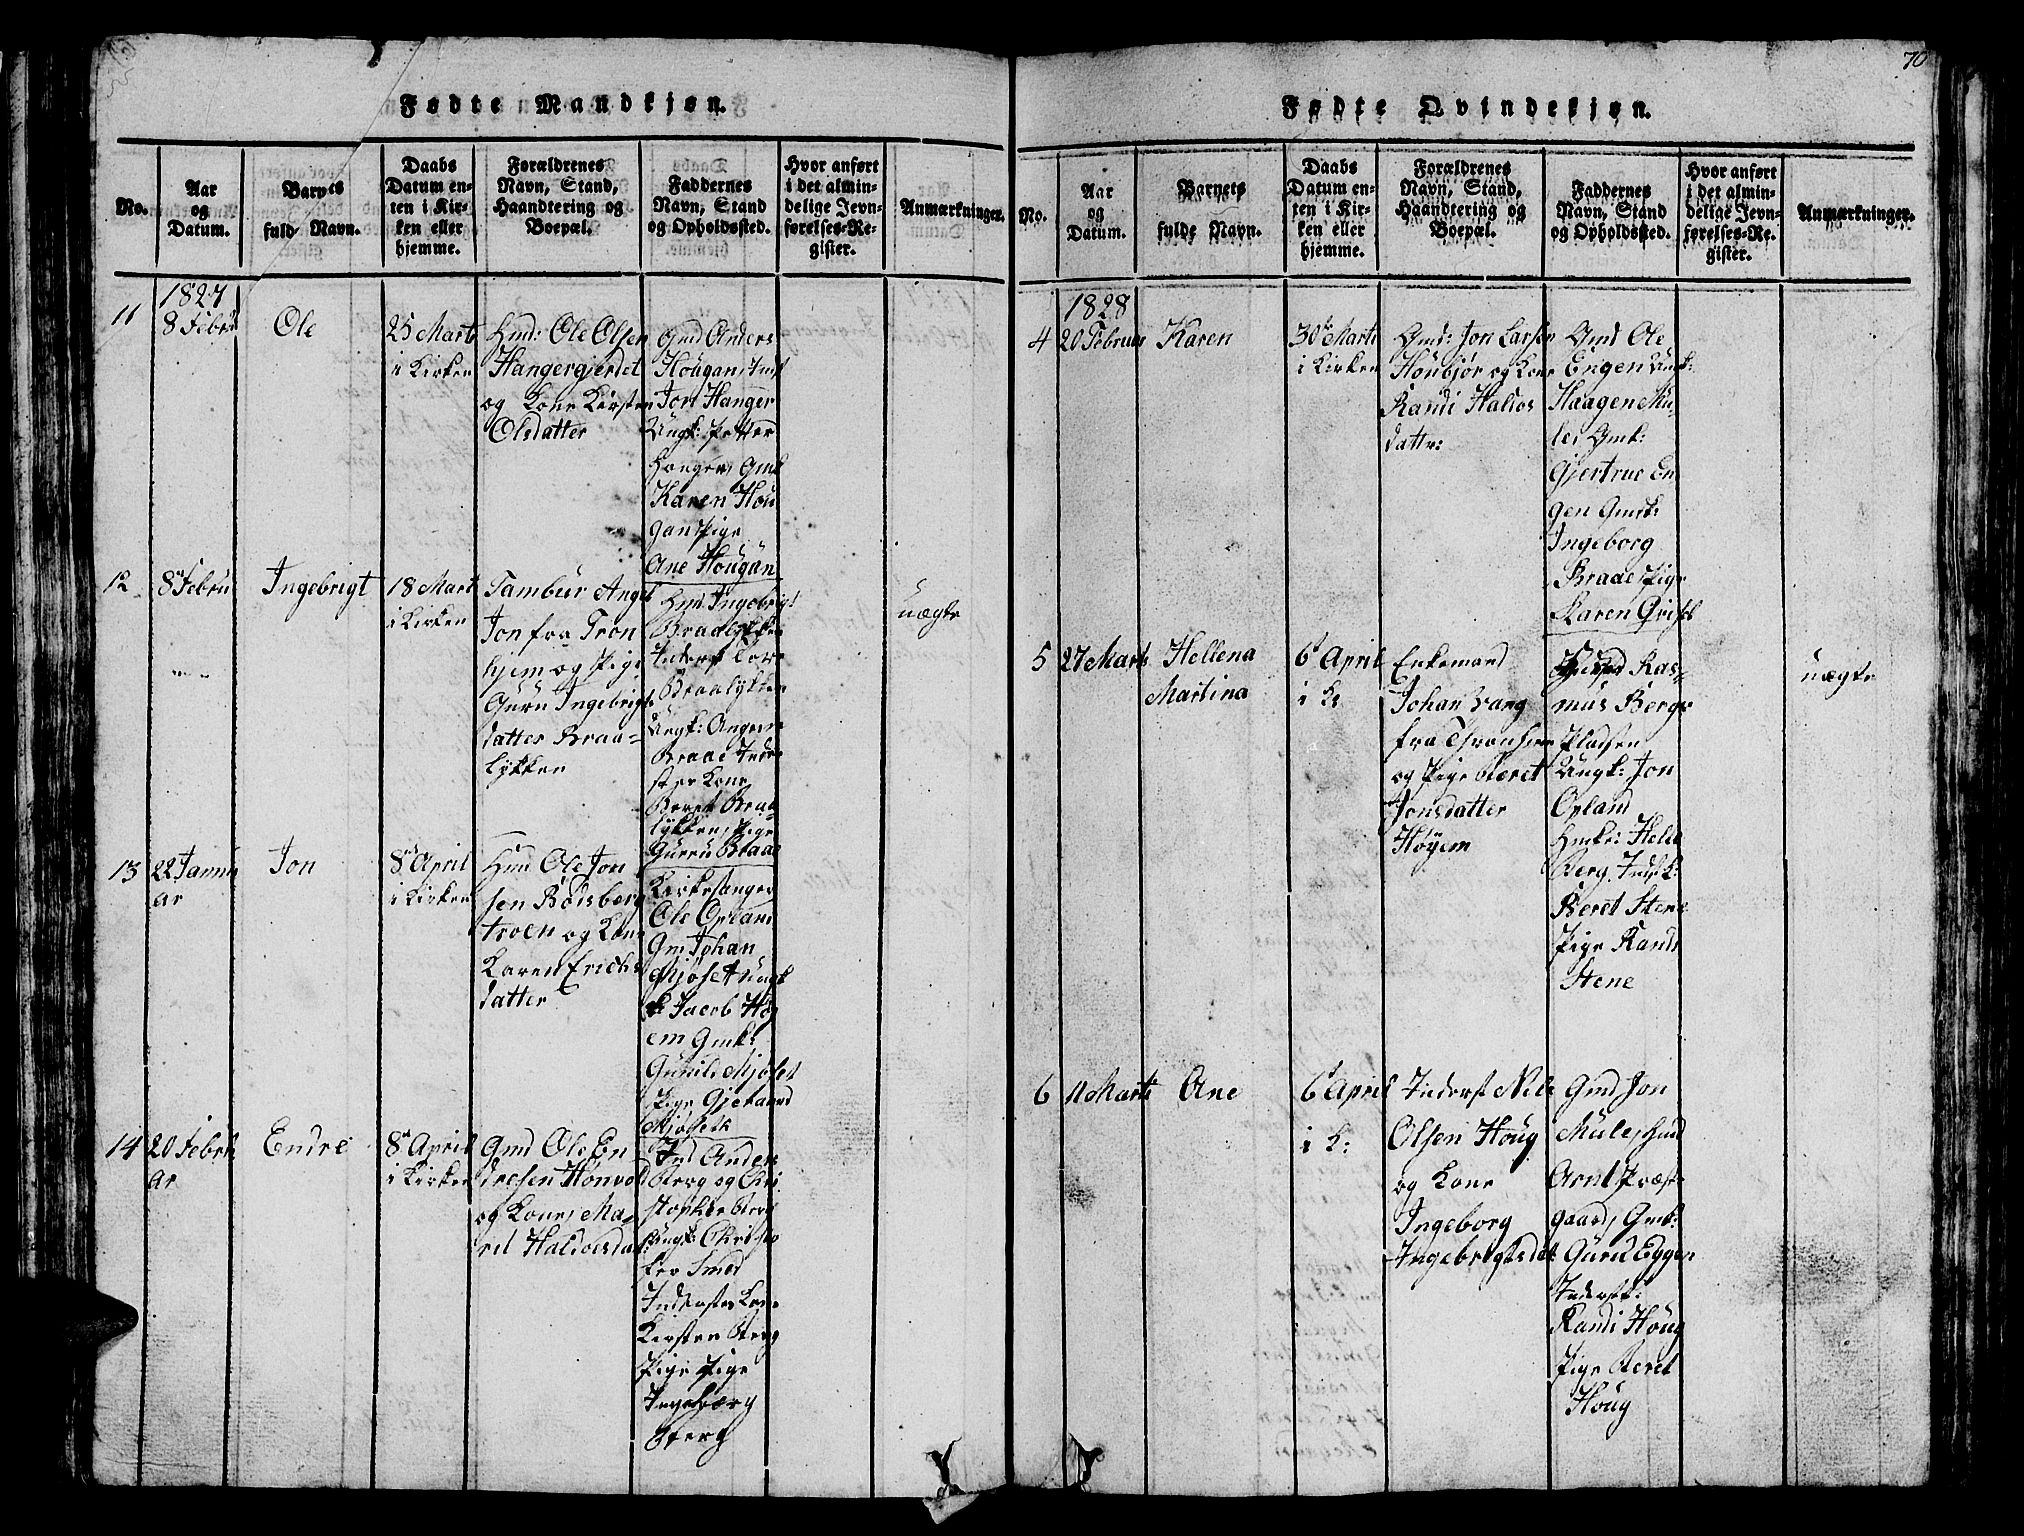 Fødte Mandkjøn.
No.
Aar
og
Datum.
Barnets
fuld Navn.
Daabs
Datum en-
ten i Kir-
ken eller
hjemme.
Forældrenes
Navn, Stand,
Haandtering og
Boepæl.
Faddernes
Navn, Stand
og Opholdssted.
Hvor anført
i det almin-
delige Jevn-
førelses-Re-
gister.
Anmærkninger.
11
1827
8 Febru
Ole
25 Marts
i Kirken
Hmd: Ole Olsen
Hangergjerdet
og Kone Kirsten
Olsdatter
Gmd Anders
Hougan, Inst
Jon Hanger
Ungk: Petter
Hanger, Gmk
Karen Hou
gan Pige
Ane Hougan
12
8 Febru
Ingebrigt
18 Mart
i Kirken
Tambur Angel
Jon fra Tron
hjem og Pige
Guru Ingebrigts
datter Braa-
lykken
Hmd Ingebrigt
Braalykken
Inderst Tore
Braalykken
Ungk: Angem
Braae Inder
ster Kone
Beret Braa
lykken, Pige
Gurru Braae
uægte
13
22 Janu
ar
Jon
8 April
i Kirken
Hmd Ole Jon
sen Bøisberg
troen og Kone
Karen Erichs
datter
Kirkesanger
Ole Opland
Gm Johan
Mjøset Ungk
Jacob Høg
em Gmk:
Gunil Mjøset
Pige Gjertrud
Mjøseth
14
20 Febru
ar
Endre
8 April
i Kirken
Gmd Ole En
dresen Honvold
og Kone, Ma-
rit Haldoesdat
Ind Anders
Berg og Chri
stopher Berg
Ungk: Christo
fer Smed
Inderstes Kone
Kirsten Berg
Pige Pige
Ingeborg
Berg
Fødte Qvindekjøn.
70
No.
Aar
og
Datum.
Barnets
fulde Navn.
Daabs
Datum en-
ten i Kir-
ken eller
hjemme.
Forældrenes
Navn, Stand,
Haandtering og
Boepæl.
Faddernes
Navn, Stand
og Opholdssted.
Hvor anført
i det almin-
delige Jevn-
førelses-Re-
gister.
Anmærkninger.
1828
4
20 Februar
Karen
30 Marts
i Kirken
Gmd: Jon Larsen
Houbjør og Kone
Randi Haldos
dattr:
Gmd Ole
Engen Ungk:
Haagen Mu-
les Gmk:
Gjertrue En
gen Gmsk:
Ingeborg
Braae, Pige
Karen Qvist
5
27 Marts
Hellena
Martina
6 April
i K
Enkemand
Johan Vang
fra Tronhiem
og Pige Beret
Jonsdatter
Høyem
Ras-
mus Bergs
Pladsen
Ungk: Jon
Opland
Hmkr: Hele
Berg. Indst K:
Beret Stene
Pige Randi
Stene
uægte
6
11 Marts
Ane
6 April
i K:
Inderst Nils
Olsen Houg
og Kone
Ingeborg
Ingebrigtsdat
Gmd Jon
Mule, Hmd
Arnt Præst
gaard, Gmk:
Guru Eggen
Inderstk:
Randi Houg
Pige Beret
Houg